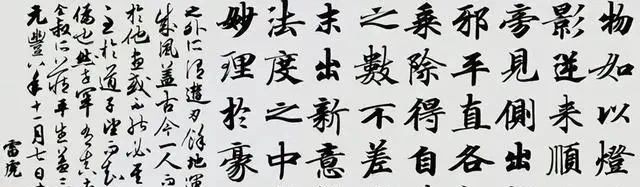 物如以燈
影逆來順
旁見側出
邪平直各
乘除得自
之數不差
末出新意
法度之中
妙理於豪
之外所謂遊刃餘地運
成風蓋古今一人而
於他畫或不能必其
至於道子望而知
偽也然世罕有真
全叔所藏平生蓋一二
元豐八年十一月七日
雷虎